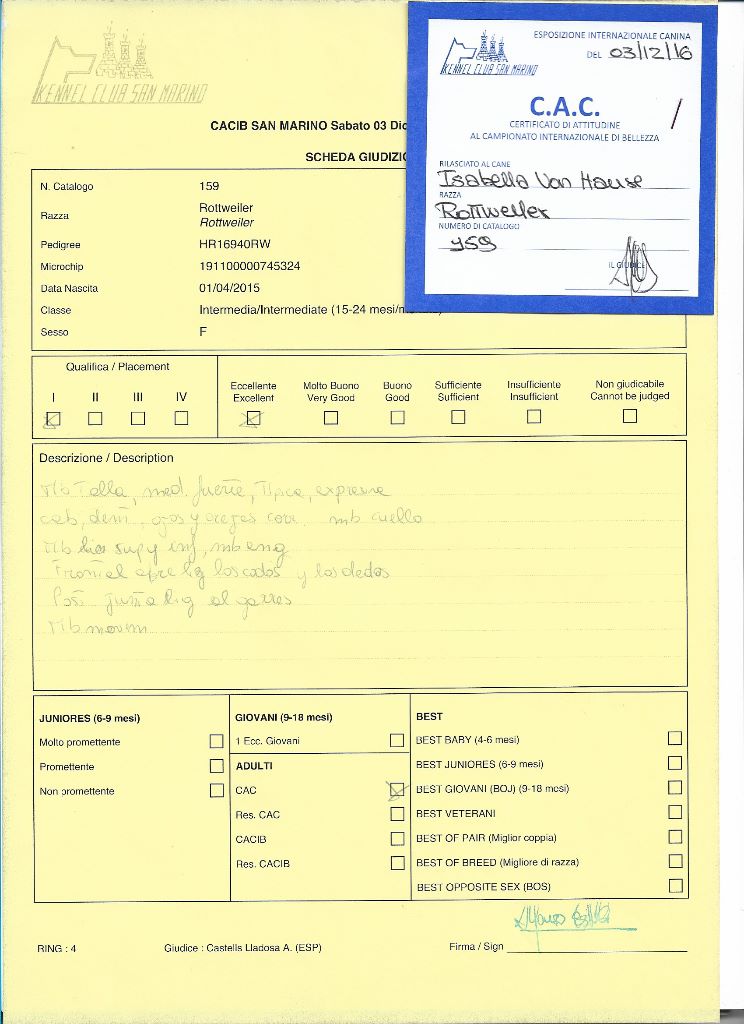 KENNEL CLUB SAN MARINO
CACIB SAN MARINO Sabato 03 Dic
SCHEDA GIUDIZI
KENNEL CLUB SAN MARINO
ESPOSIZIONE INTERNAZIONALE CANINA
DEL 03/12/16
C.A.C.
CERTIFICATO DI ATTITUDINE
AL CAMPIONATO INTERNAZIONALE DI BELLEZZA
RILASCIATO AL CANE
Isabella Von Hause
RAZZA
Rottweiler
NUMERO DI CATALOGO
159
IL GIUDICE
N. Catalogo 159
Razza Rottweiler
Rottweiler
Pedigree HR16940RW
Microchip 191100000745324
Data Nascita 01/04/2015
Classe Intermedia/Intermediate (15-24 mesi/
Sesso F
Qualifica / Placement
I II III IV
Eccellente Molto Buono Buono Sufficiente Insufficiente Non giudicabile
Excellent Very Good Good Sufficient Insufficient Cannot be judged
Descrizione / Description
Mb Talla, med. fuerte, Tipica,
cab, dent, ojos y orejas corr. mb cuello
Mb sup y inf, mb
Frontal lig los codos y los dedos
Post. junta lig
Mb movim
JUNIORES (6-9 mesi) GIOVANI (9-18 mesi) BEST
Molto promettente 1 Ecc. Giovani BEST BABY (4-6 mesi)
Promettente ADULTI BEST JUNIORES (6-9 mesi)
Non promettente CAC BEST GIOVANI (BOJ) (9-18 mesi)
Res. CAC BEST VETERANI
CACIB BEST OF PAIR (Miglior coppia)
Res. CACIB BEST OF BREED (Migliore di razza)
BEST OPPOSITE SEX (BOS)
RING : 4 Giudice : Castells Lladosa A. (ESP) Firma / Sign